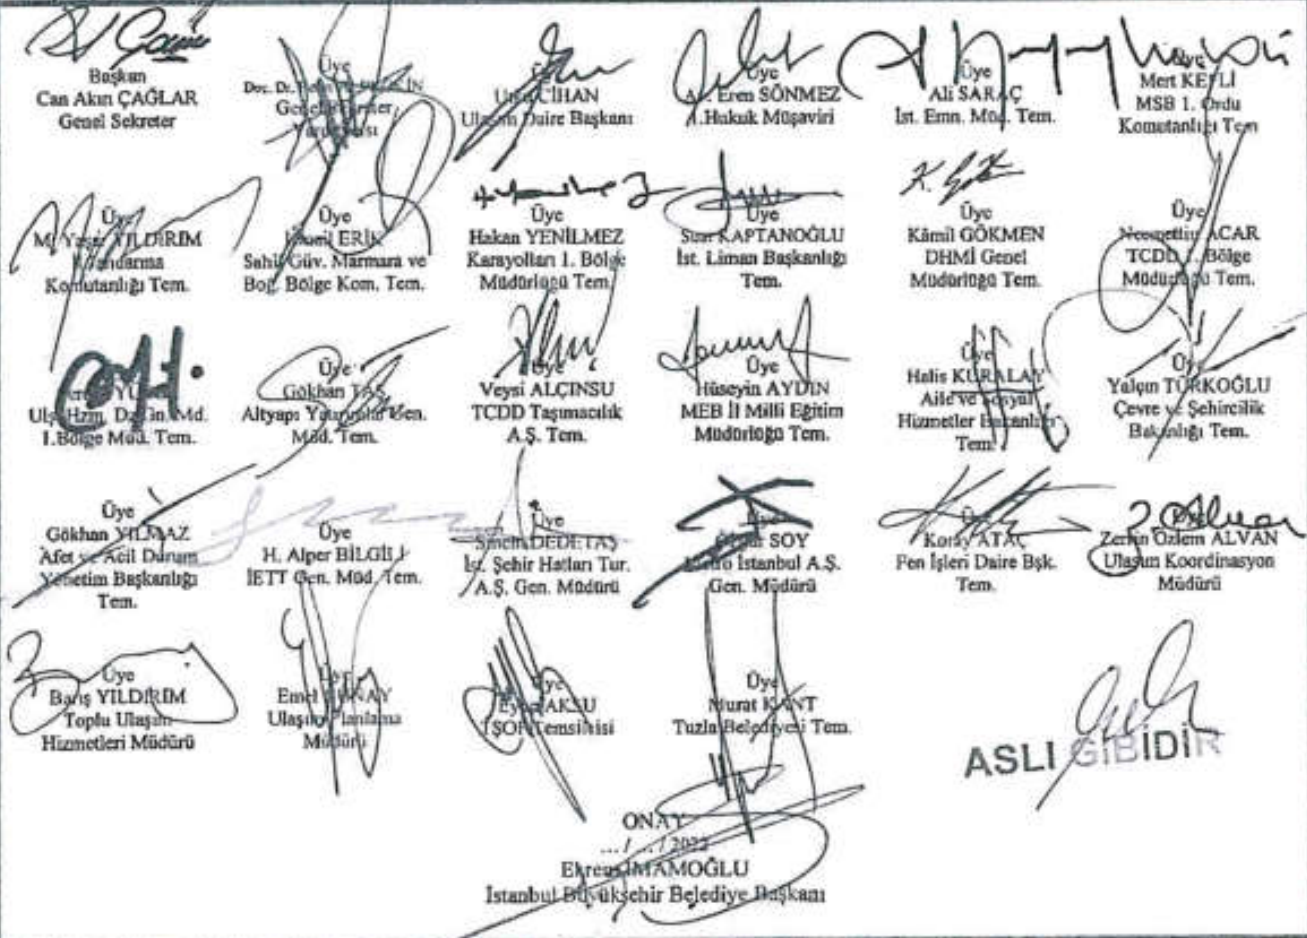 Başkan
Can Akın ÇAĞLAR
Genel Sekreter
Üye
Doç. Dr.
Üye
CİHAN
Ulaşım Daire Başkanı
Üye
Eren SÖNMEZ
1.Hukuk Müşaviri
Üye
Ali SARAÇ
İst. Emn. Müd. Tem.
Üye
Mert
MSB 1. Ordu
Komutanlığı Tem
Üye
YILDIRIM
Komutanlığı Tem.
Üye
ERİK
Sahil Güv. Marmara ve
Boğ. Bölge Kom. Tem.
Üye
Hakan YENİLMEZ
Karayolları 1. Bölge
Müdürlüğü Tem.
Üye
KAPTANOĞLU
İst. Liman Başkanlığı
Tem.
Üye
Kâmil GÖKMEN
DHMİ Genel
Müdürlüğü Tem.
Üye
ACAR
TCDD 1. Bölge
Müdürlüğü Tem.
Md.
1.Bölge Müd. Tem.
Üye
Gökhan TAŞ
Altyapı Yatırımlar Gen.
Müd. Tem.
Üye
Veysi ALÇINSU
TCDD Taşımacılık
A.Ş. Tem.
Üye
Hüseyin AYDIN
MEB İl Milli Eğitim
Müdürlüğü Tem.
Üye
Halis KURALAY
Aile ve Sosyal
Hizmetler Bakanlığı
Tem.
Üye
Yalçın TÜRKOĞLU
Çevre ve Şehircilik
Bakanlığı Tem.
Üye
Gökhan YILMAZ
Afet ve Acil Durum
Yönetim Başkanlığı
Tem.
Üye
H. Alper BİLGİLİ
İETT Gen. Müd. Tem.
Üye
DEDETAŞ
İst. Şehir Hatları Tur.
A.Ş. Gen. Müdürü
Üye
SOY
Metro İstanbul A.Ş.
Gen. Müdürü
Koray ATAÇ
Fen İşleri Daire Bşk.
Tem.
Özlem ALVAN
Ulaşım Koordinasyon
Müdürü
Üye
Barış YILDIRIM
Toplu Ulaşım
Hizmetleri Müdürü
Üye
Ulaşım Planlama
Müdürü
Üye
AKSU
TŞOF Temsilcisi
Üye
Murat KANT
Tuzla Belediyesi Tem.
ASLI GİBİDİR
ONAY
... / ... / 2022
Ekrem İMAMOĞLU
İstanbul Büyükşehir Belediye Başkanı